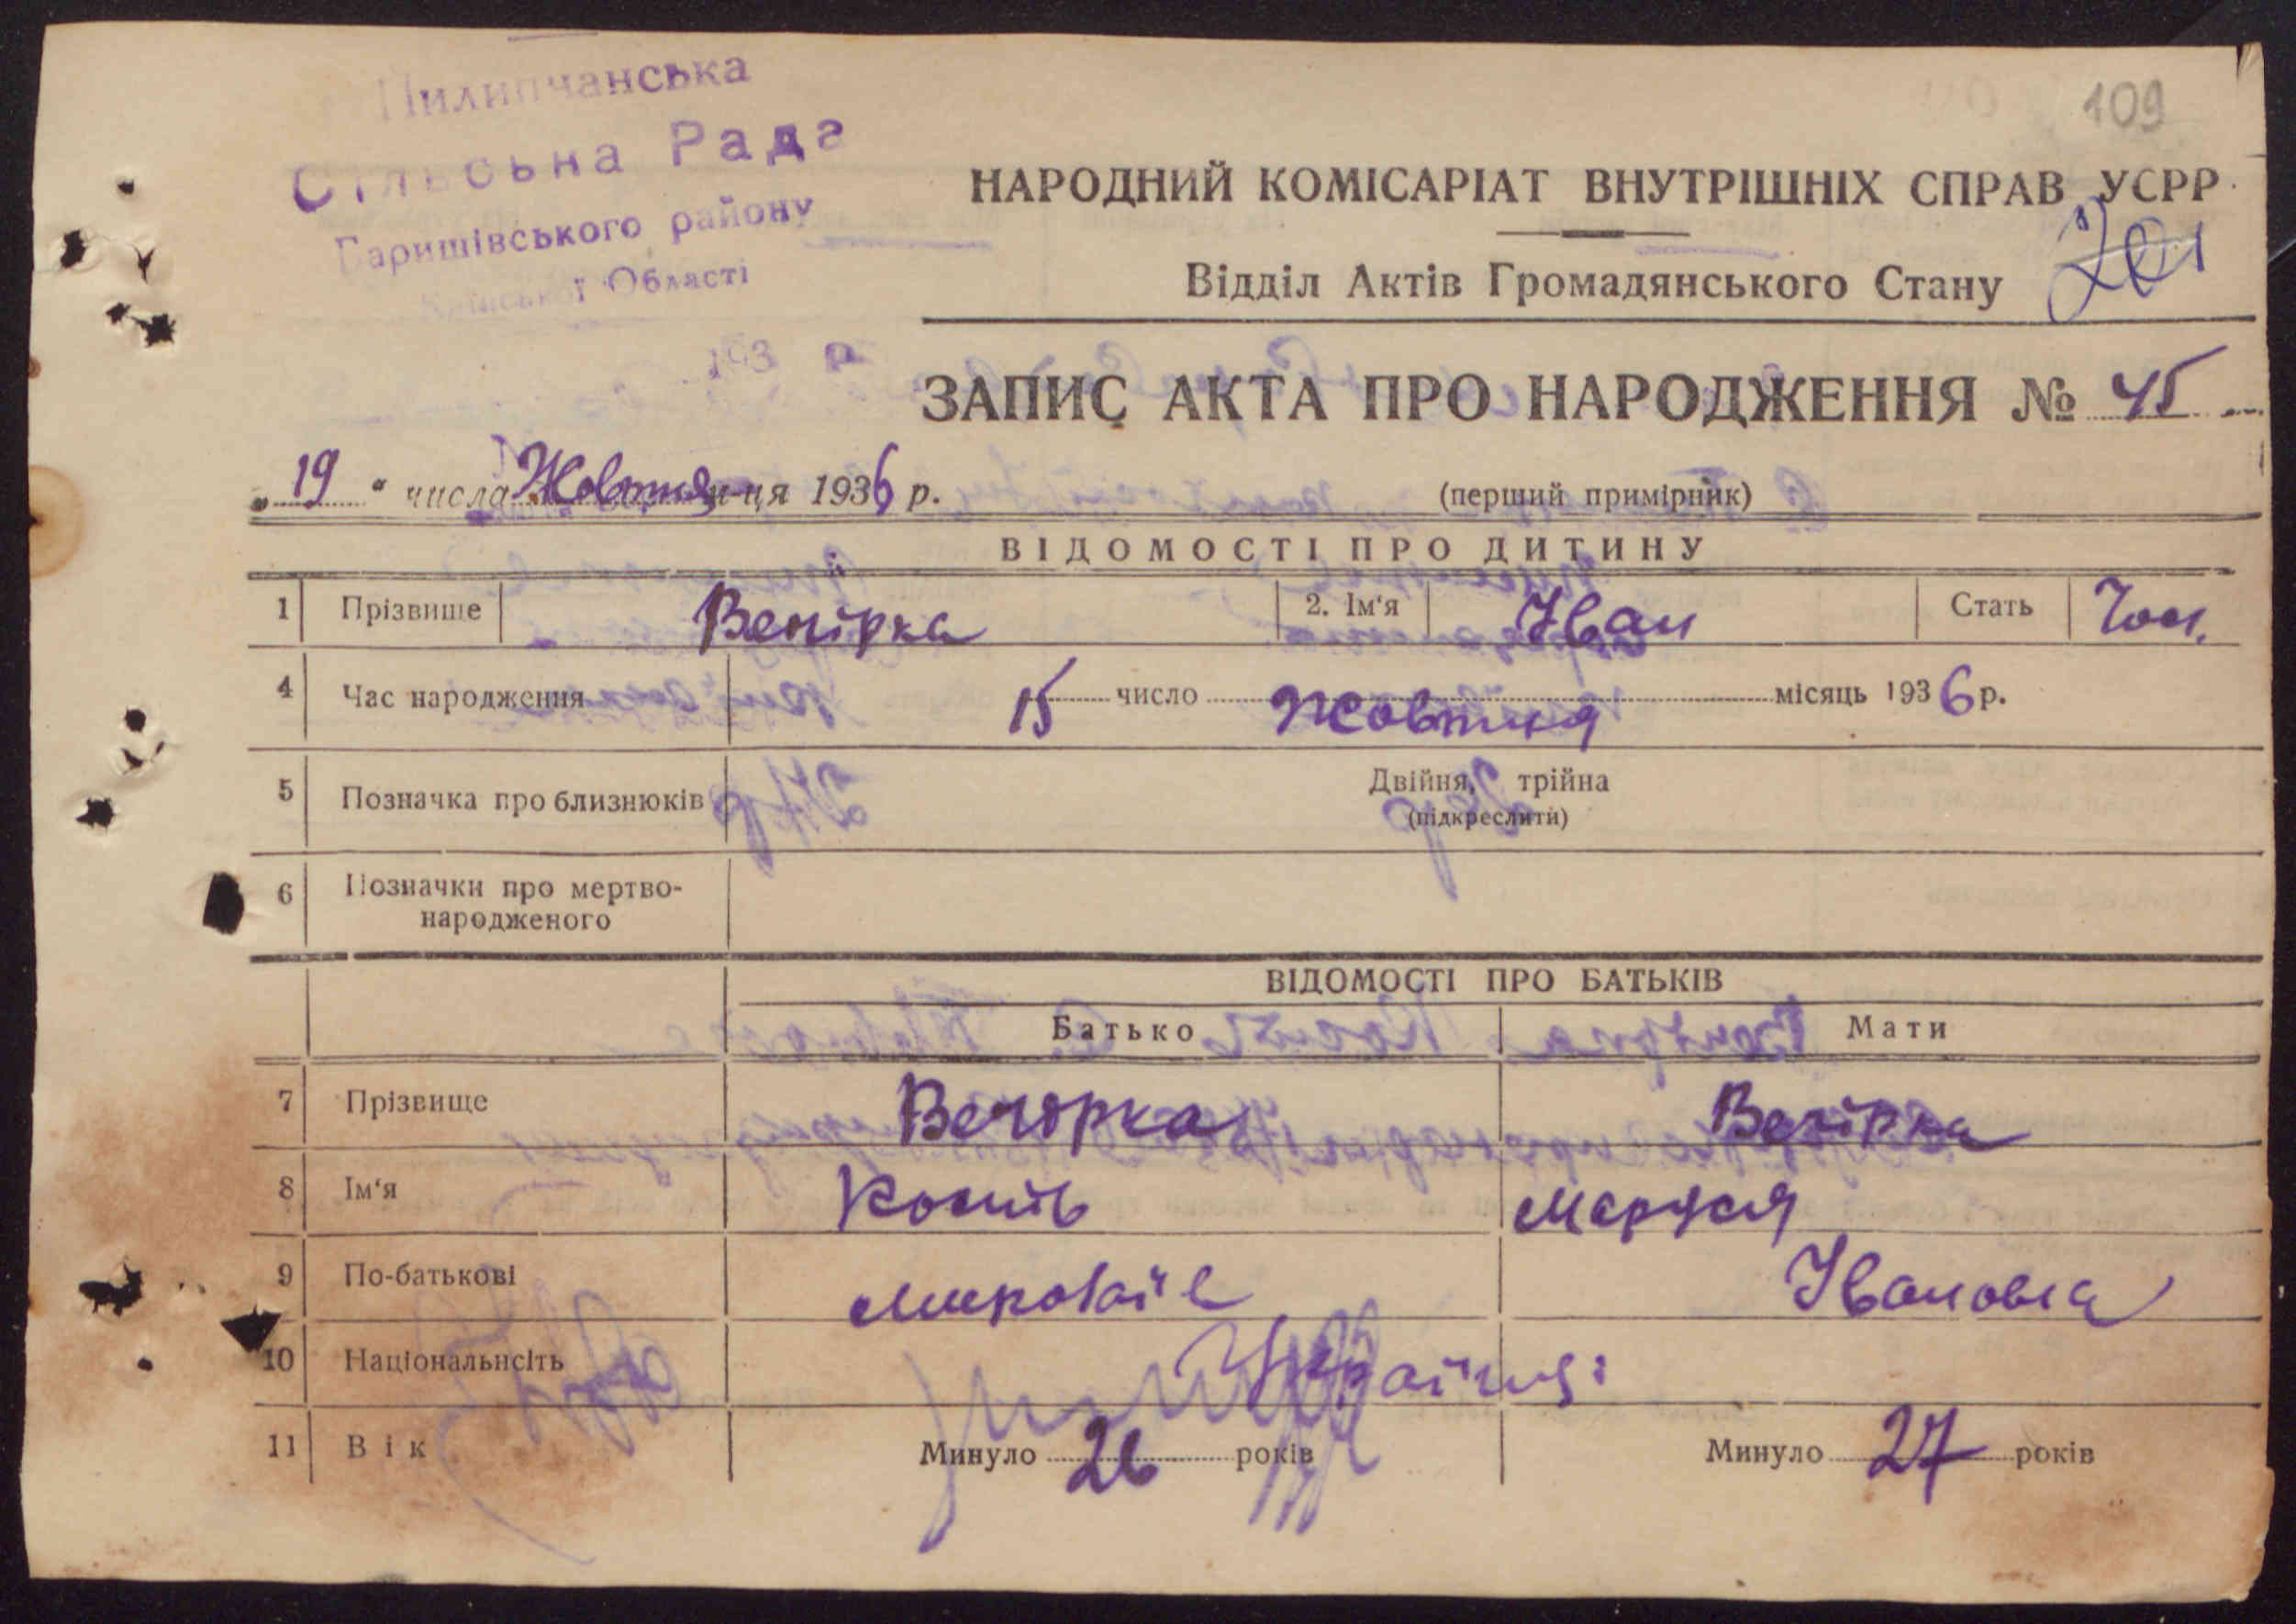 Пилипчанська
Сільська Рада
Баришівського району
Київської Області
193 р.
109
НАРОДНИЙ КОМІСАРІАТ ВНУТРІШНІХ СПРАВ УСРР
Відділ Актів Громадянського Стану
ЗАПИС АКТА ПРО НАРОДЖЕННЯ № 45
„ 19 " числа Жовтня м-ця 1936 р.
(перший примірник)
ВІДОМОСТІ ПРО ДИТИНУ
1 Прізвище Вечірка 2. Ім'я Іван Стать Чол.
4 Час народження 15 число Жовтня місяць 1936 р.
5 Позначка про близнюків Двійня, трійна
(підкреслити)
6 Позначки про мертво-
народженого
ВІДОМОСТІ ПРО БАТЬКІВ
Батько Мати
7 Прізвище Вечірка Вечірка
8 Ім'я Кость Марфия
9 По-батькові Івановна
10 Національнсіть Українці
11 Вік Минуло 26 років Минуло 27 років